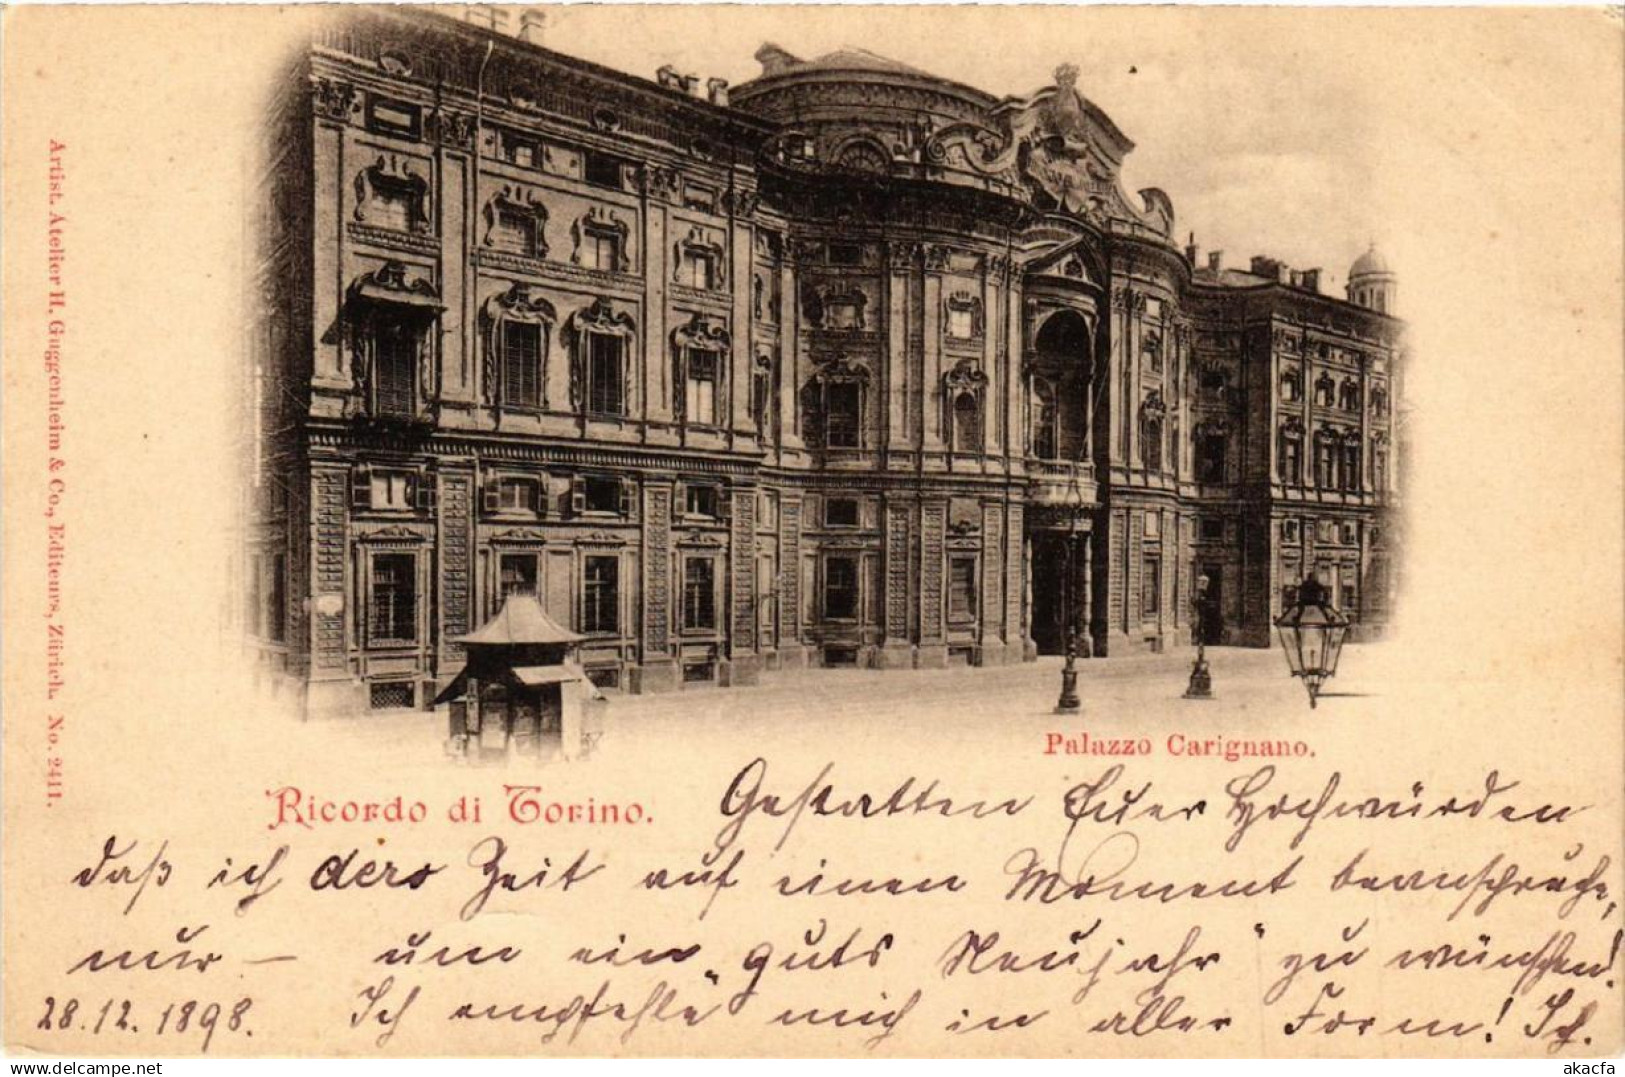 Artist. Atelier H. Guggenheim & Co., Editeurs, Zürich. No. 2411.
Palazzo Carignano.
Ricordo di Torino.
Gestatten Euer Hochwürden
daß ich ders Zeit auf einen Moment beanspruche,
nur – um ein „guts Neujahr" zu wünschen!
28.12.1898. Ich empfehle mich in aller Form! Ich.
delcampe.net
akacfa